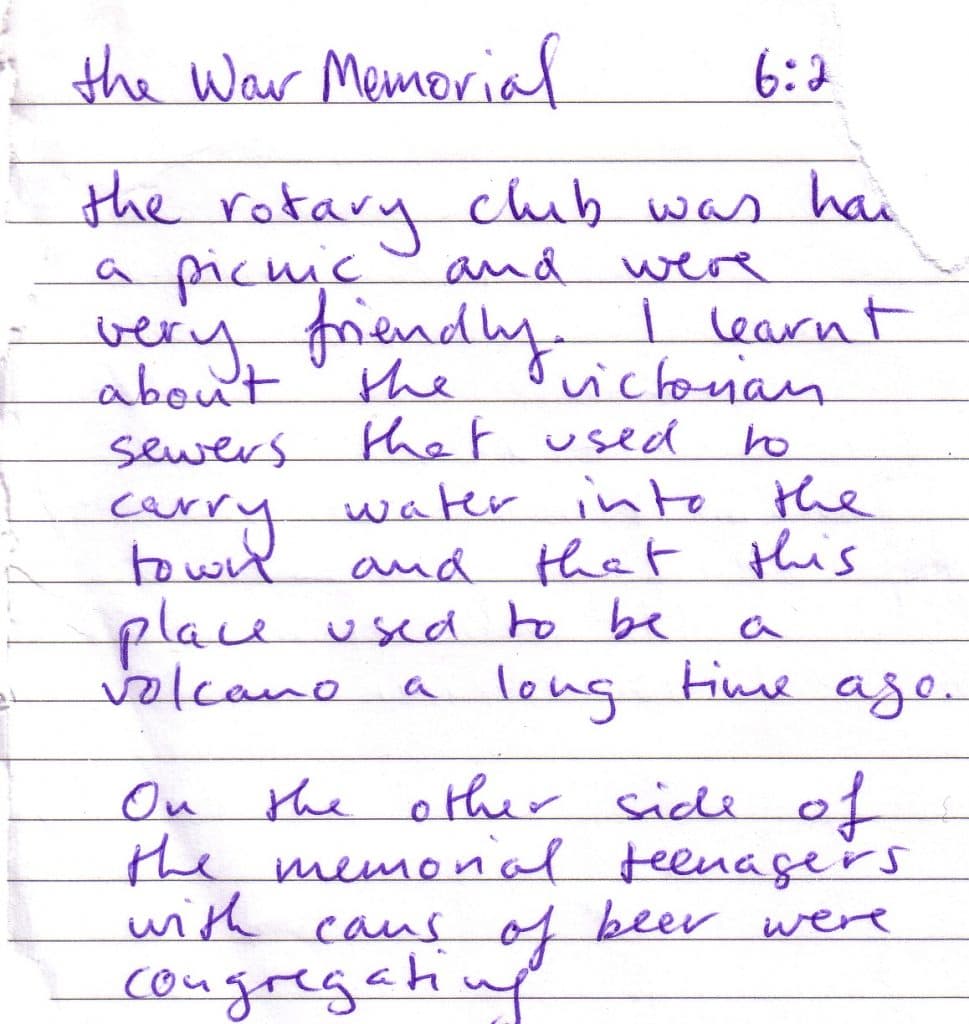 the War Memorial 6:2
the rotary club was ha
a picnic and were
very friendly. I learnt
about the victorian
sewers that used to
carry water into the
town and that this
place used to be a
volcano a long time ago.
On the other side of
the memorial teenagers
with cans of beer were
congregating